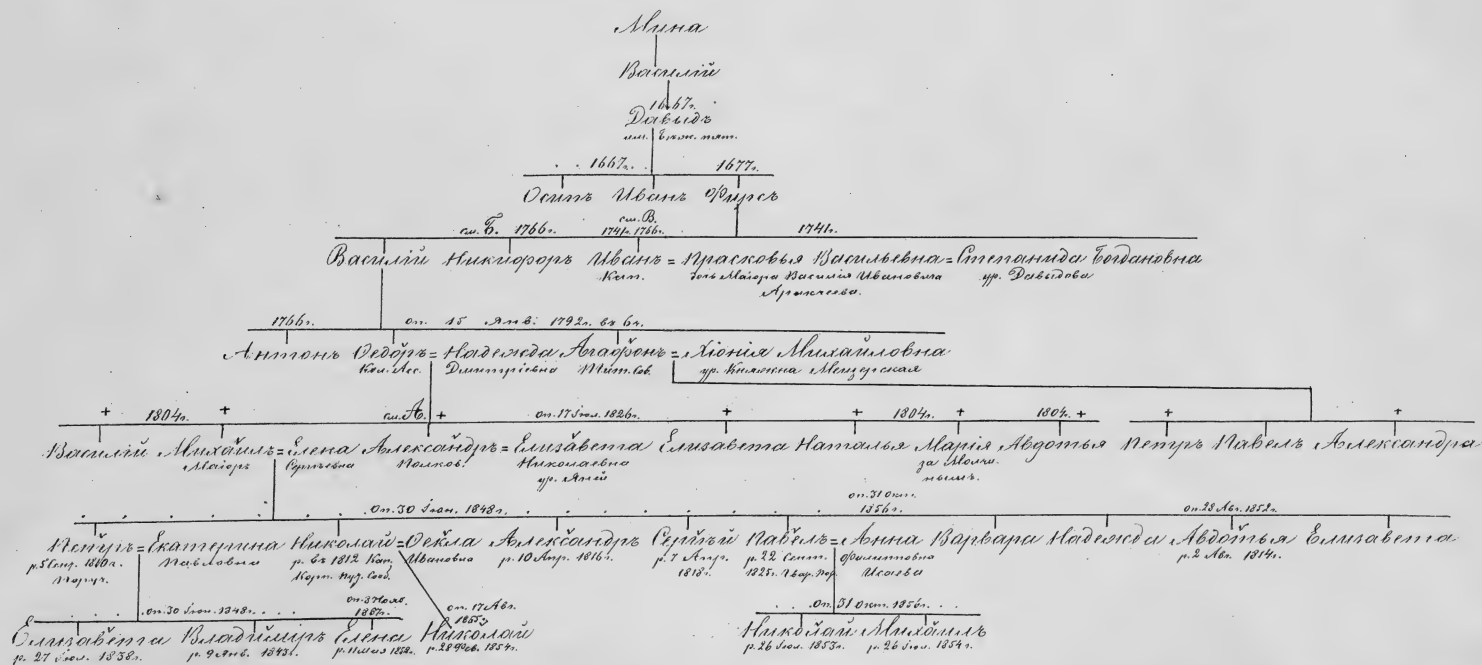 Мина
Василій
1667г.
Давыдъ
пят.
1667г. 1677г.
Осипъ Иванъ Фирсъ
см. Б. 1766г. см. В. 1741г. 1766г. 1741г.
Василій Никифоръ Иванъ = Прасковья Васильевна = Степанида Богдановна
Кап. дочь Маіора Василія Ивановича ур. Давыдова
Аракчеева.
1766г. оп. 15 Янв. 1792г. въ 6ч.
Антонъ Ѳедоръ = Надежда Агафонъ = Хіонія Михайловна
Кол. Асс. Дмитріевна Тит. Сов. ур. Княжна Мещерская
+ 1804г. + см. А. + оп. 17 Іюл. 1826г. + + 1804г. + 1804. + + +
Василій Михаилъ = Елена Александръ = Елизавета Елизавета Наталья Марія Авдотья Петръ Павелъ Александра
Маіоръ Сергѣевна Полков. Николаевна за Молча-
ур. нымъ.
оп. 30 Іюн. 1848г. оп. 31 окт. 1856г. оп. 28 Авг. 1852г.
Петръ = Екатерина Николай = Ѳекла Александръ Сергѣй Павелъ = Анна Варвара Надежда Авдотья Елизавета
р. 5 Сент. 1810г. Павловна р. въ 1812 Кап. Ивановна р. 10 Апр. 1816г. р. 7 Апр. р. 22 Сент. Филипповна р. 2 Авг. 1814г.
Поруч. Корп. Пут. Сооб. 1818г. 1825г. Гвар. Пор. Исаева
оп. 30 Іюн. 1848г. оп. 3 Нояб. 1867г. оп. 17 Авг. 1855г. оп. 31 окт. 1856г.
Елизавета Владиміръ Елена Николай Николай Михаилъ
р. 27 Іюл. 1838г. р. 9 Янв. 1843г. р. 11 Мая р. 28 Фев. 1854г. р. 26 Іюл. 1853г. р. 26 Іюл. 1854г.